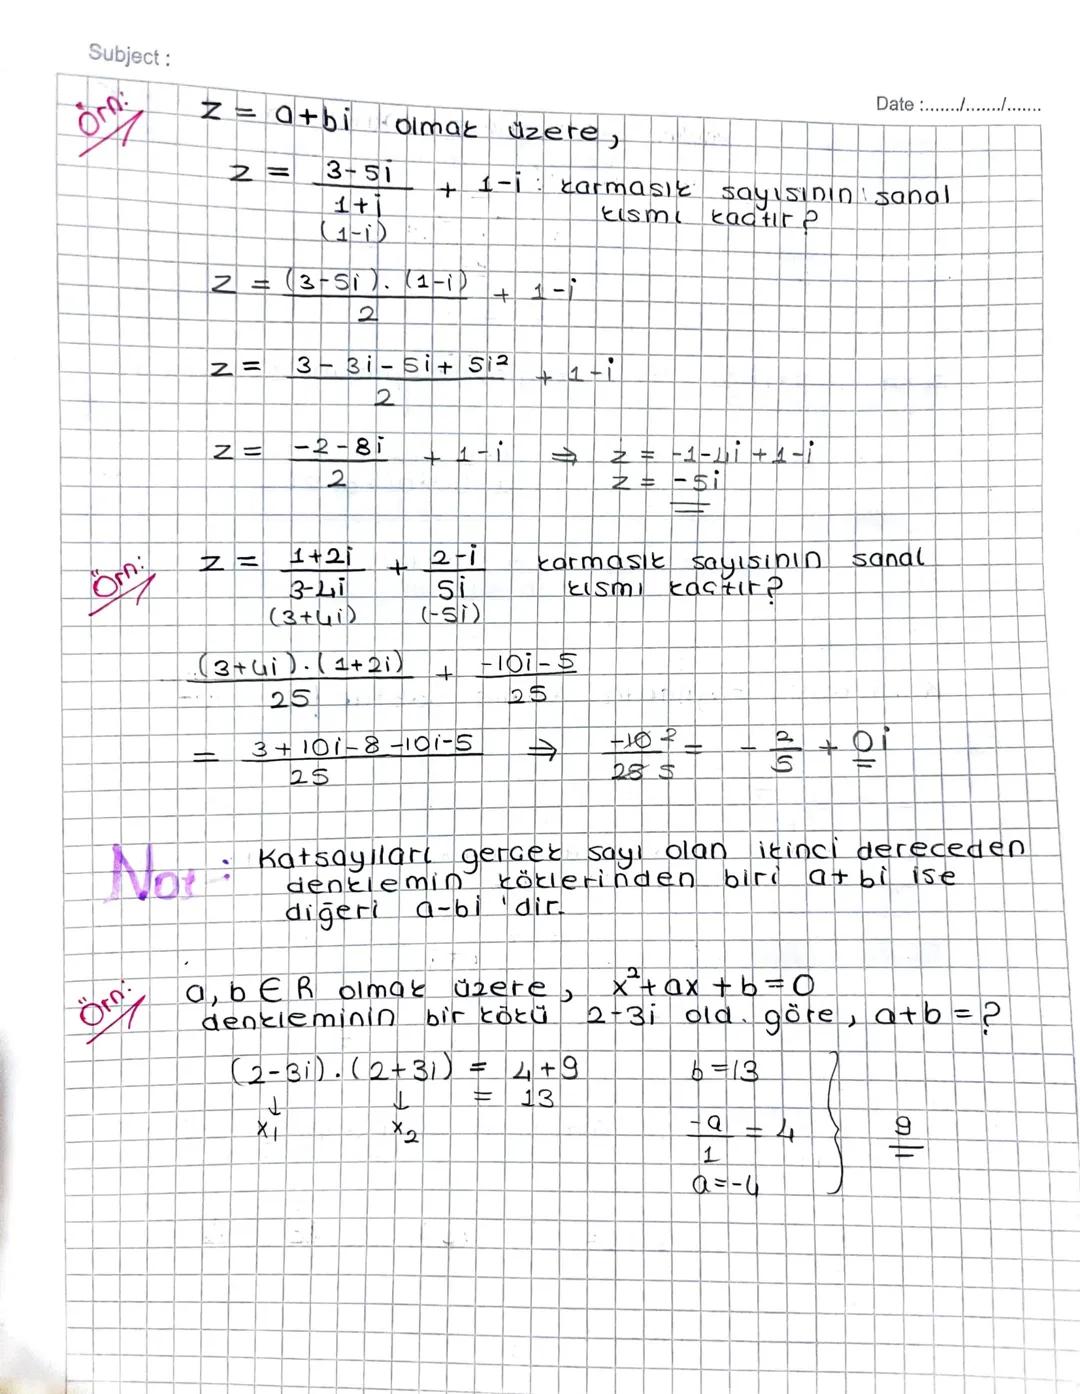 Subject :
Date :......./......./.......
Örn:
z = a+bi olmak üzere,
z = 3-5i / 1+i + 1-i : karmaşık sayısının sanal
(1-i)
kısmı kaçtır?
z = (3-5i).(1-i) / 2 + 1-i
z = 3-3i-5i+5i² / 2 + 1-i
z = -2-8i / 2 + 1-i ⇒ z = -1-4i+1-i
z = -5i
Örn:
z = 1+2i / 3-4i + 2-i / 5i karmaşık sayısının sanal
(3+4i) (-5i)
kısmı kaçtır?
(3+4i).(1+2i) / 25 + -10i-5 / 25
= 3+10i-8-10i-5 / 25 ⇒ -10 2 / 25 5 = - 2/5 + 0i
Not : Katsayıları gerçek sayı olan ikinci dereceden
denklemin köklerinden biri a+bi ise
diğeri a-bi 'dir.
Örn:
a, b ∈ R olmak üzere, x²+ax+b=0
denkleminin bir kökü 2-3i old. göre, a+b=?
(2-3i).(2+3i) = 4+9 b=13
↓ ↓ = 13
x₁ x₂ -a / 1 = 4 } 9
a=-4